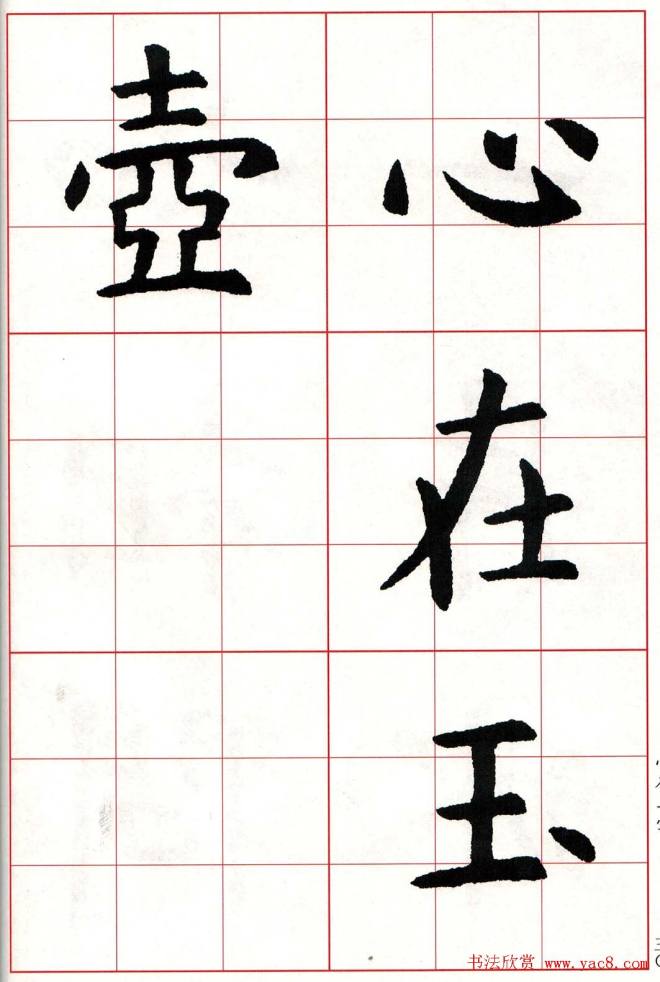 心在玉
壺
三〇
书法欣赏 www.yac8.com